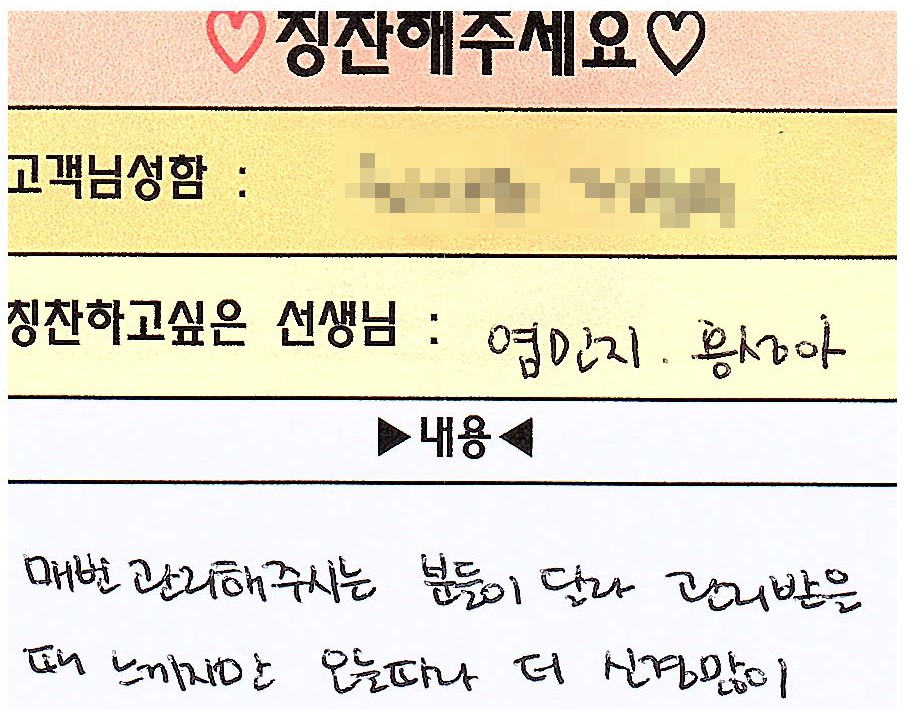 ♡칭찬해주세요♡
고객님성함 :
칭찬하고싶은 선생님 : 엄민지. 홍성아
▶내용◀
매번 관리해주시는 분들이 달라 관리받을
때 느끼지만 오늘따라 더 신경많이